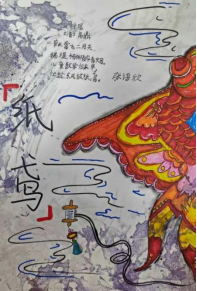 村居
(清) 高鼎
草长莺飞二月天,
拂堤杨柳醉春烟。
儿童散学归来早,
忙趁东风放纸鸢。
「纸鸢」